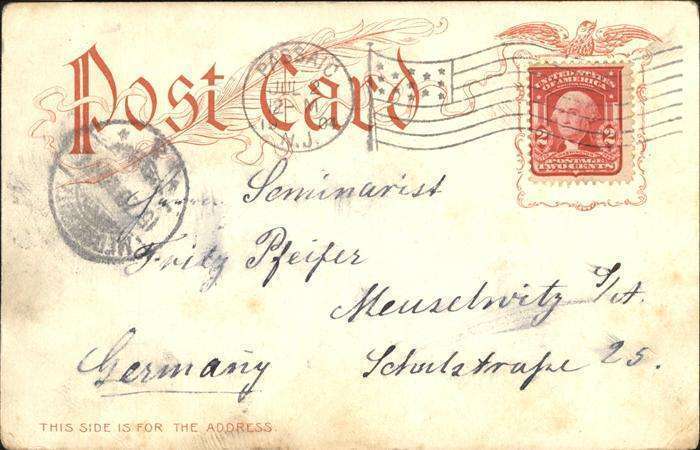 Post Card
PASSAIC
JUL
12
N.J.
UNITED STATES
OF AMERICA
2 2
POSTAGE
TWO CENTS
Herrn Seminarist
Fritz Pfeifer
Meuselwitz S/A.
Germany Schulstraße 25.
THIS SIDE IS FOR THE ADDRESS